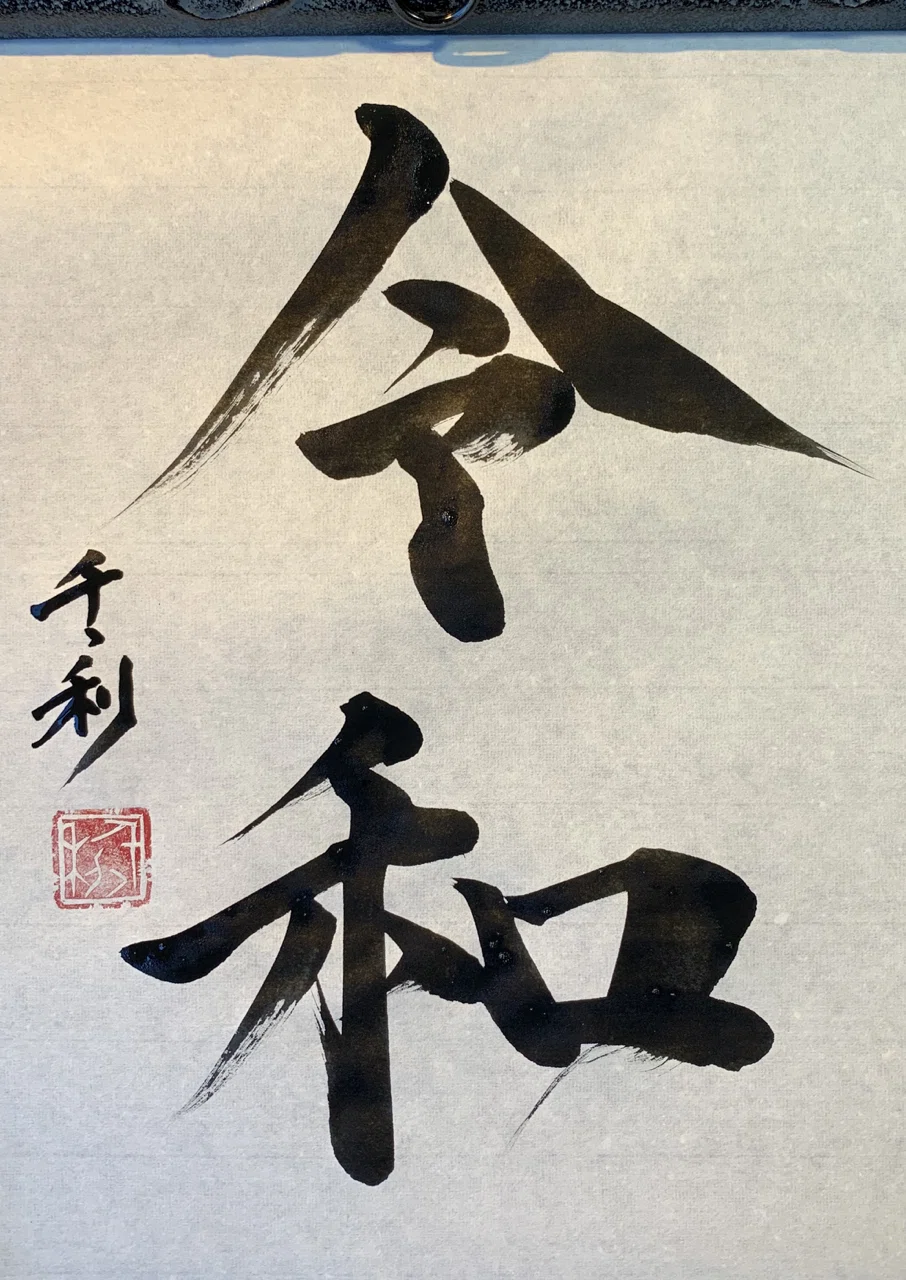 令和
千利